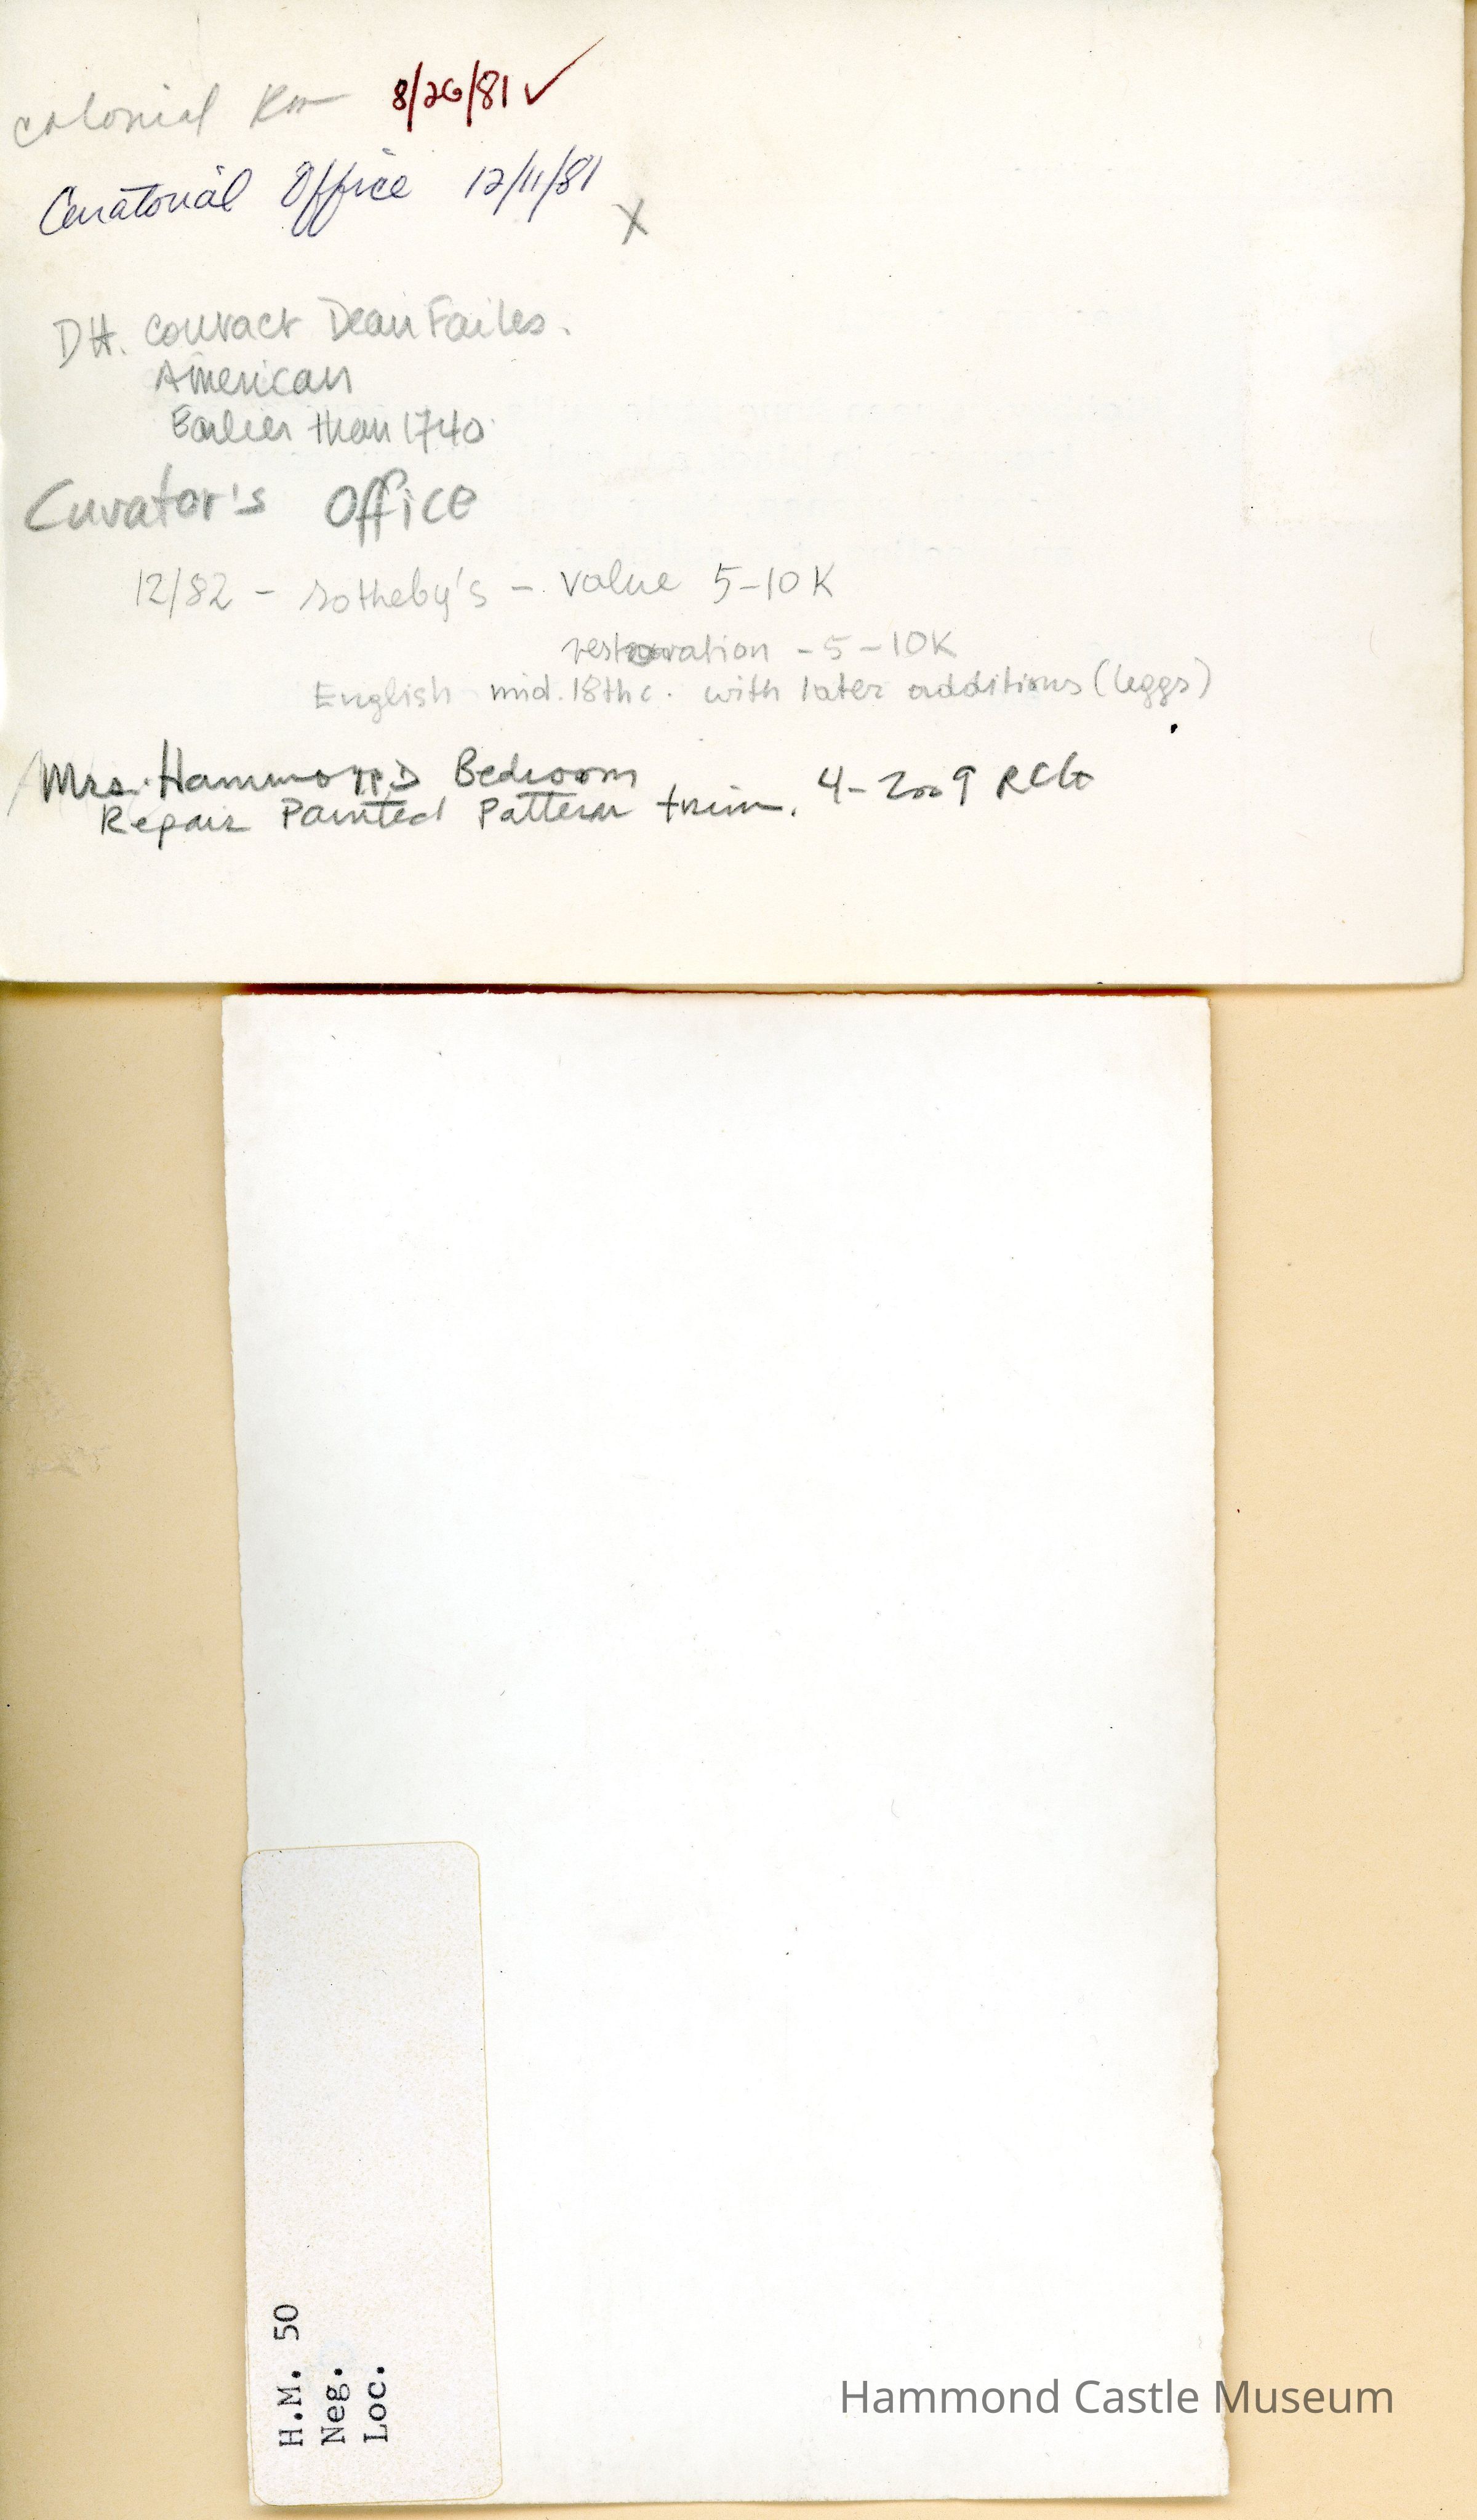 Colonial Rm 8/26/81 ✓
Curatorial Office 12/11/81
X
DH. contact Dean Failes.
American
Earlier than 1740.
Curator's Office
12/82 - Sotheby's - value 5-10K
restoration - 5-10K
English mid. 18th c. with later additions (leggs)
Mrs. Hammond Bedroom
Repair Painted Pattern trim. 4-2009 RCG
H.M. 50
Neg.
Loc.
Hammond Castle Museum